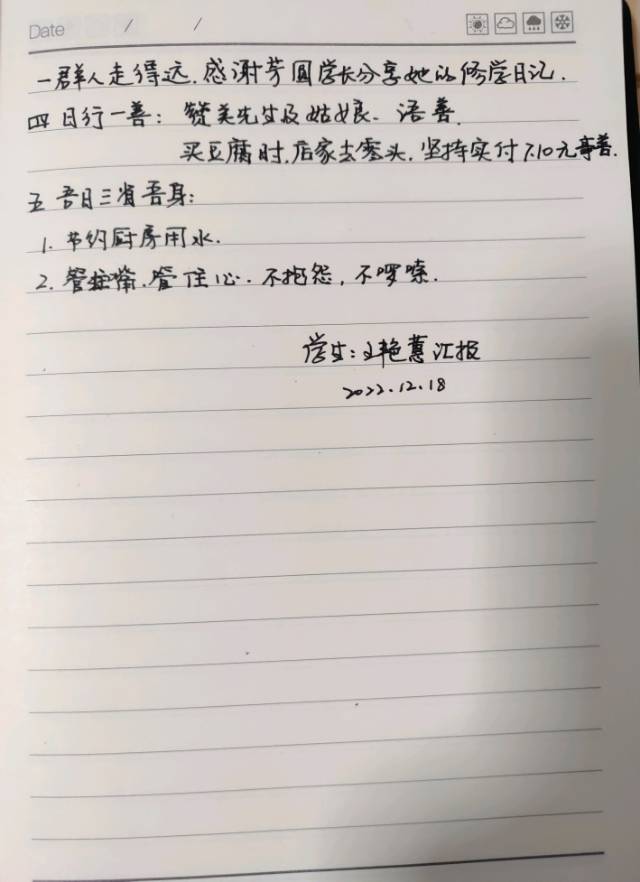 Date / /
一群人走得远.感谢芳圆学长分享她的修学日记.
四 日行一善：赞美先生及姑娘、语善.
买豆腐时,店家去零头,坚持实付7.10元
五 吾日三省吾身：
1. 节约厨房用水.
2. 管住嘴.管住心.不抱怨,不啰嗦.
学生：王艳蕙汇报
2022.12.18